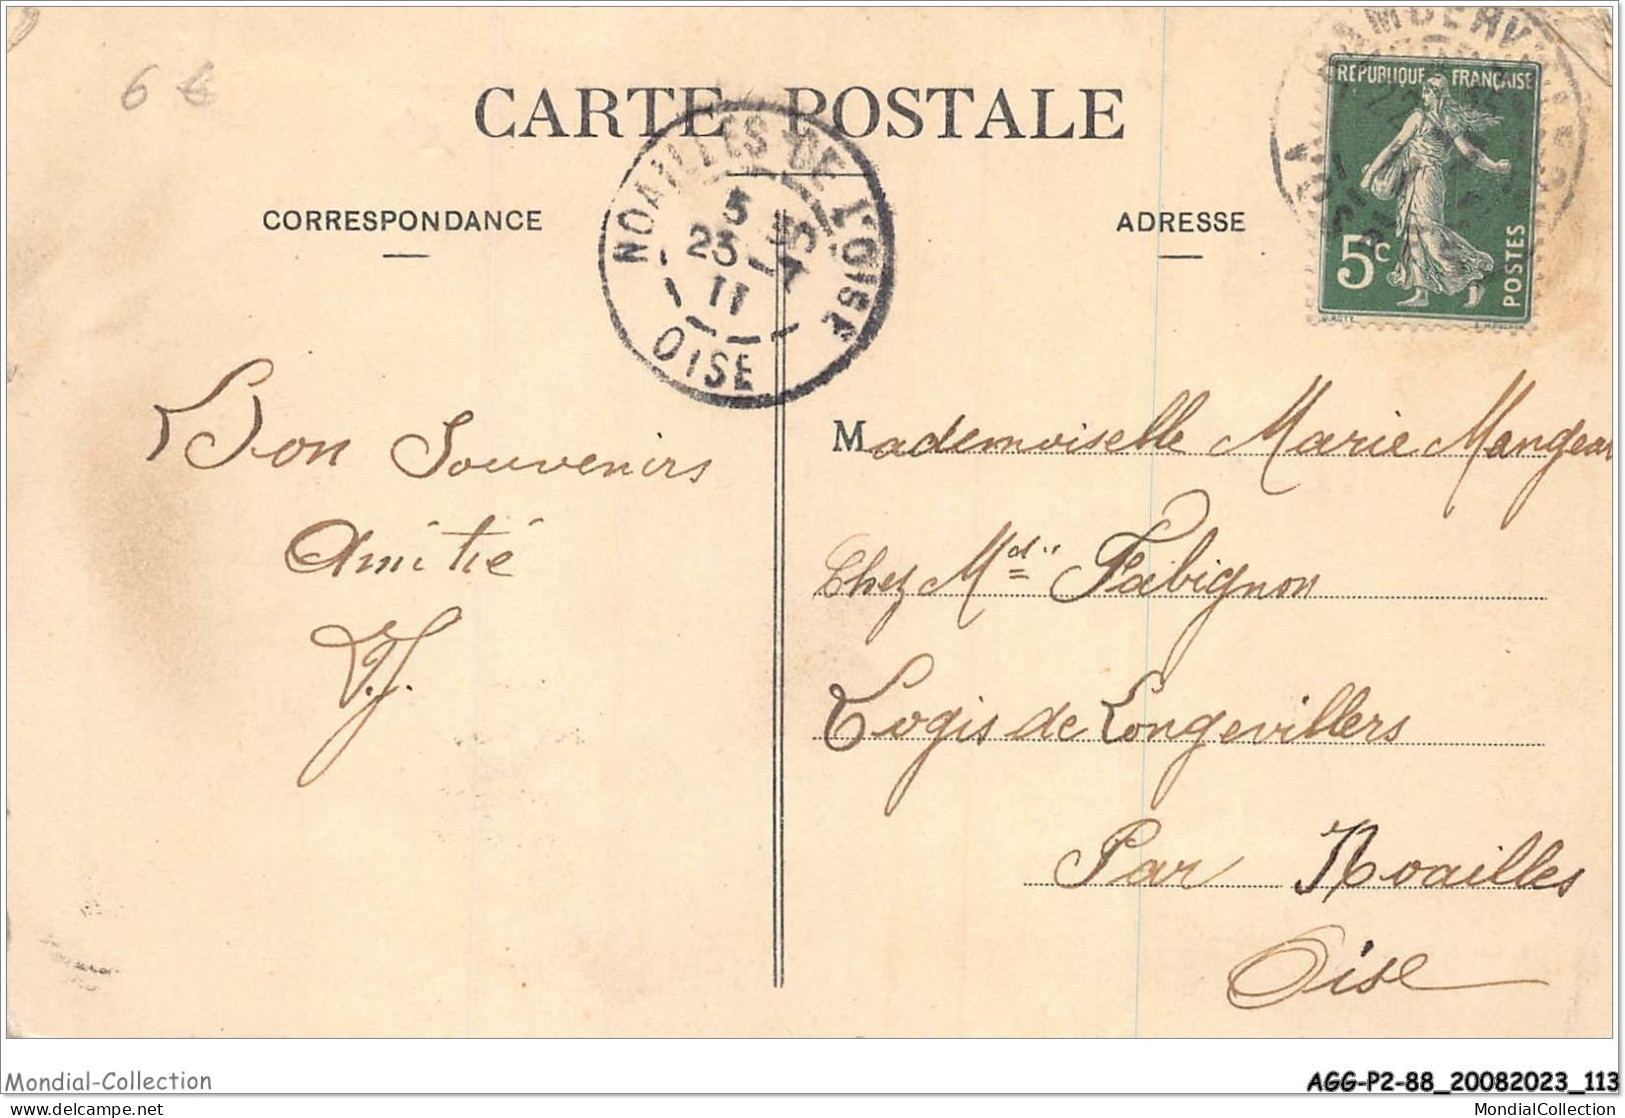 6 €
CARTE POSTALE
CORRESPONDANCE
ADRESSE
NOAILLES DE L'OISE
5
23 -7
11
OISE
RÉPUBLIQUE FRANÇAISE
5c
POSTES
Bon Souvenirs
Amitié
V.J.
Mademoiselle Marie Mangean
Chez Md Fabignon
Logis de Longevillers
Par Noailles
Oise
Mondial-Collection
AGG-P2-88_20082023_113
delcampe.net
MondialCollection